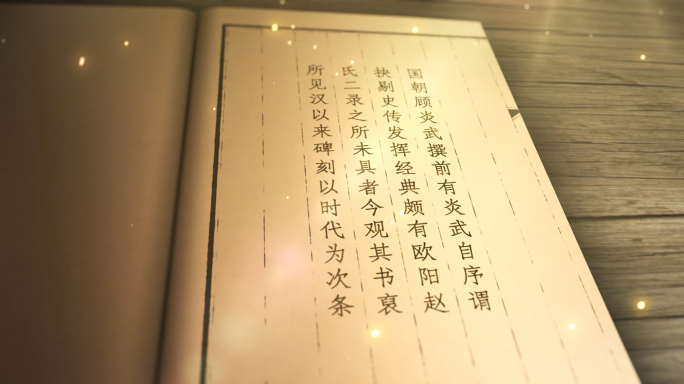 国朝顾炎武撰前有炎武自序谓
抉剔史传发挥经典颇有欧阳赵
氏二录之所未具者今观其书裒
所见汉以来碑刻以时代为次条